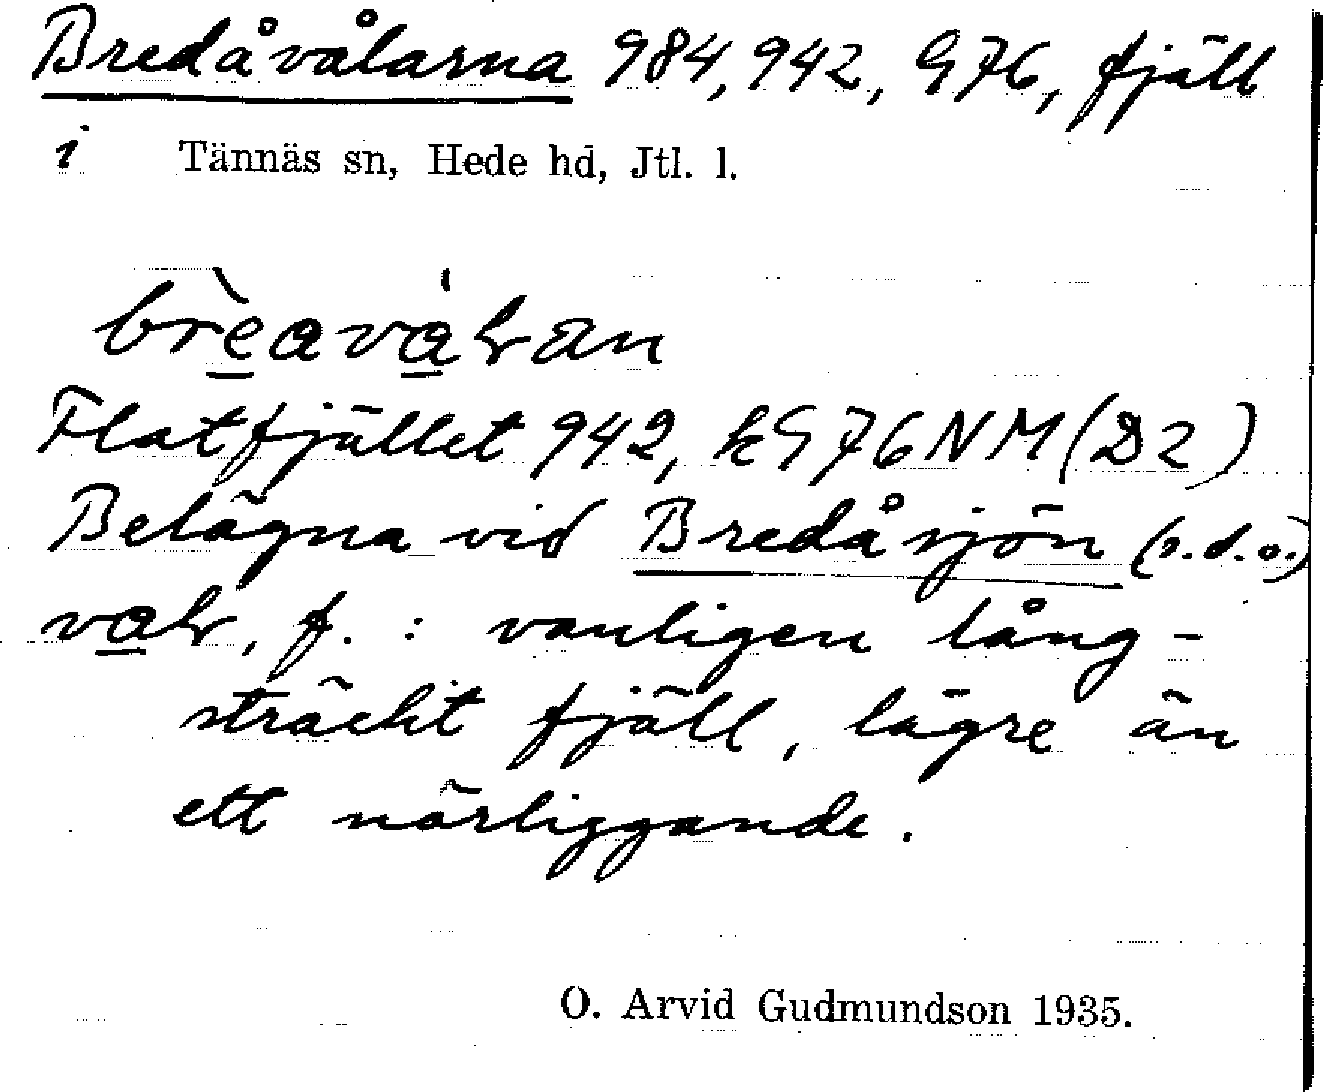 Bredåvålarna 984, 942, G76, fjäll
i Tännäs sn, Hede hd, Jtl. l.
Flatfjället 942, kG76NM (D2)
Belägna vid Bredåsjön (s.d.o.)
f. : vanligen lång-
sträckt fjäll, lägre än
ett närliggande.
O. Arvid Gudmundson 1935.